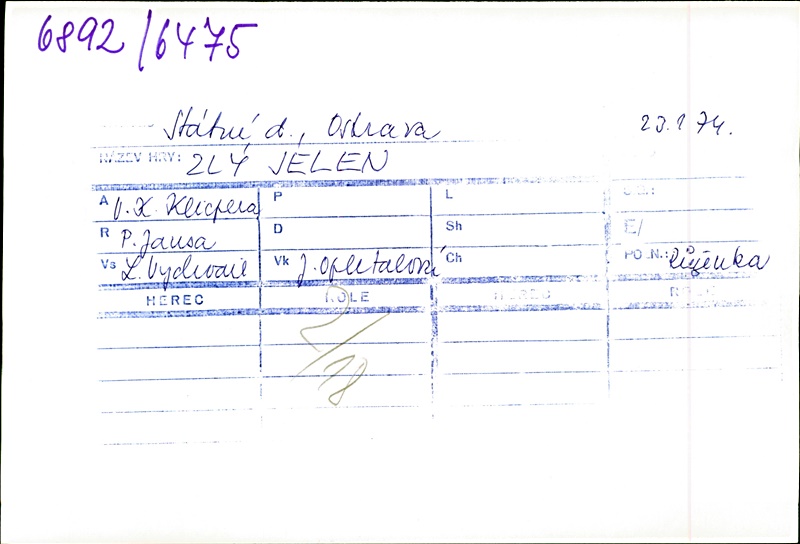 6892/6475
Státní d., Ostrava 23.1 74.
NÁZEV HRY: ZLÝ JELEN
A V. K. Klicpera P L
R P. Jansa D Sh E/
Vs L. Vychodil Vk J. Opletalová Ch POZN.: růženka
HEREC ROLE HEREC ROLE
2/18